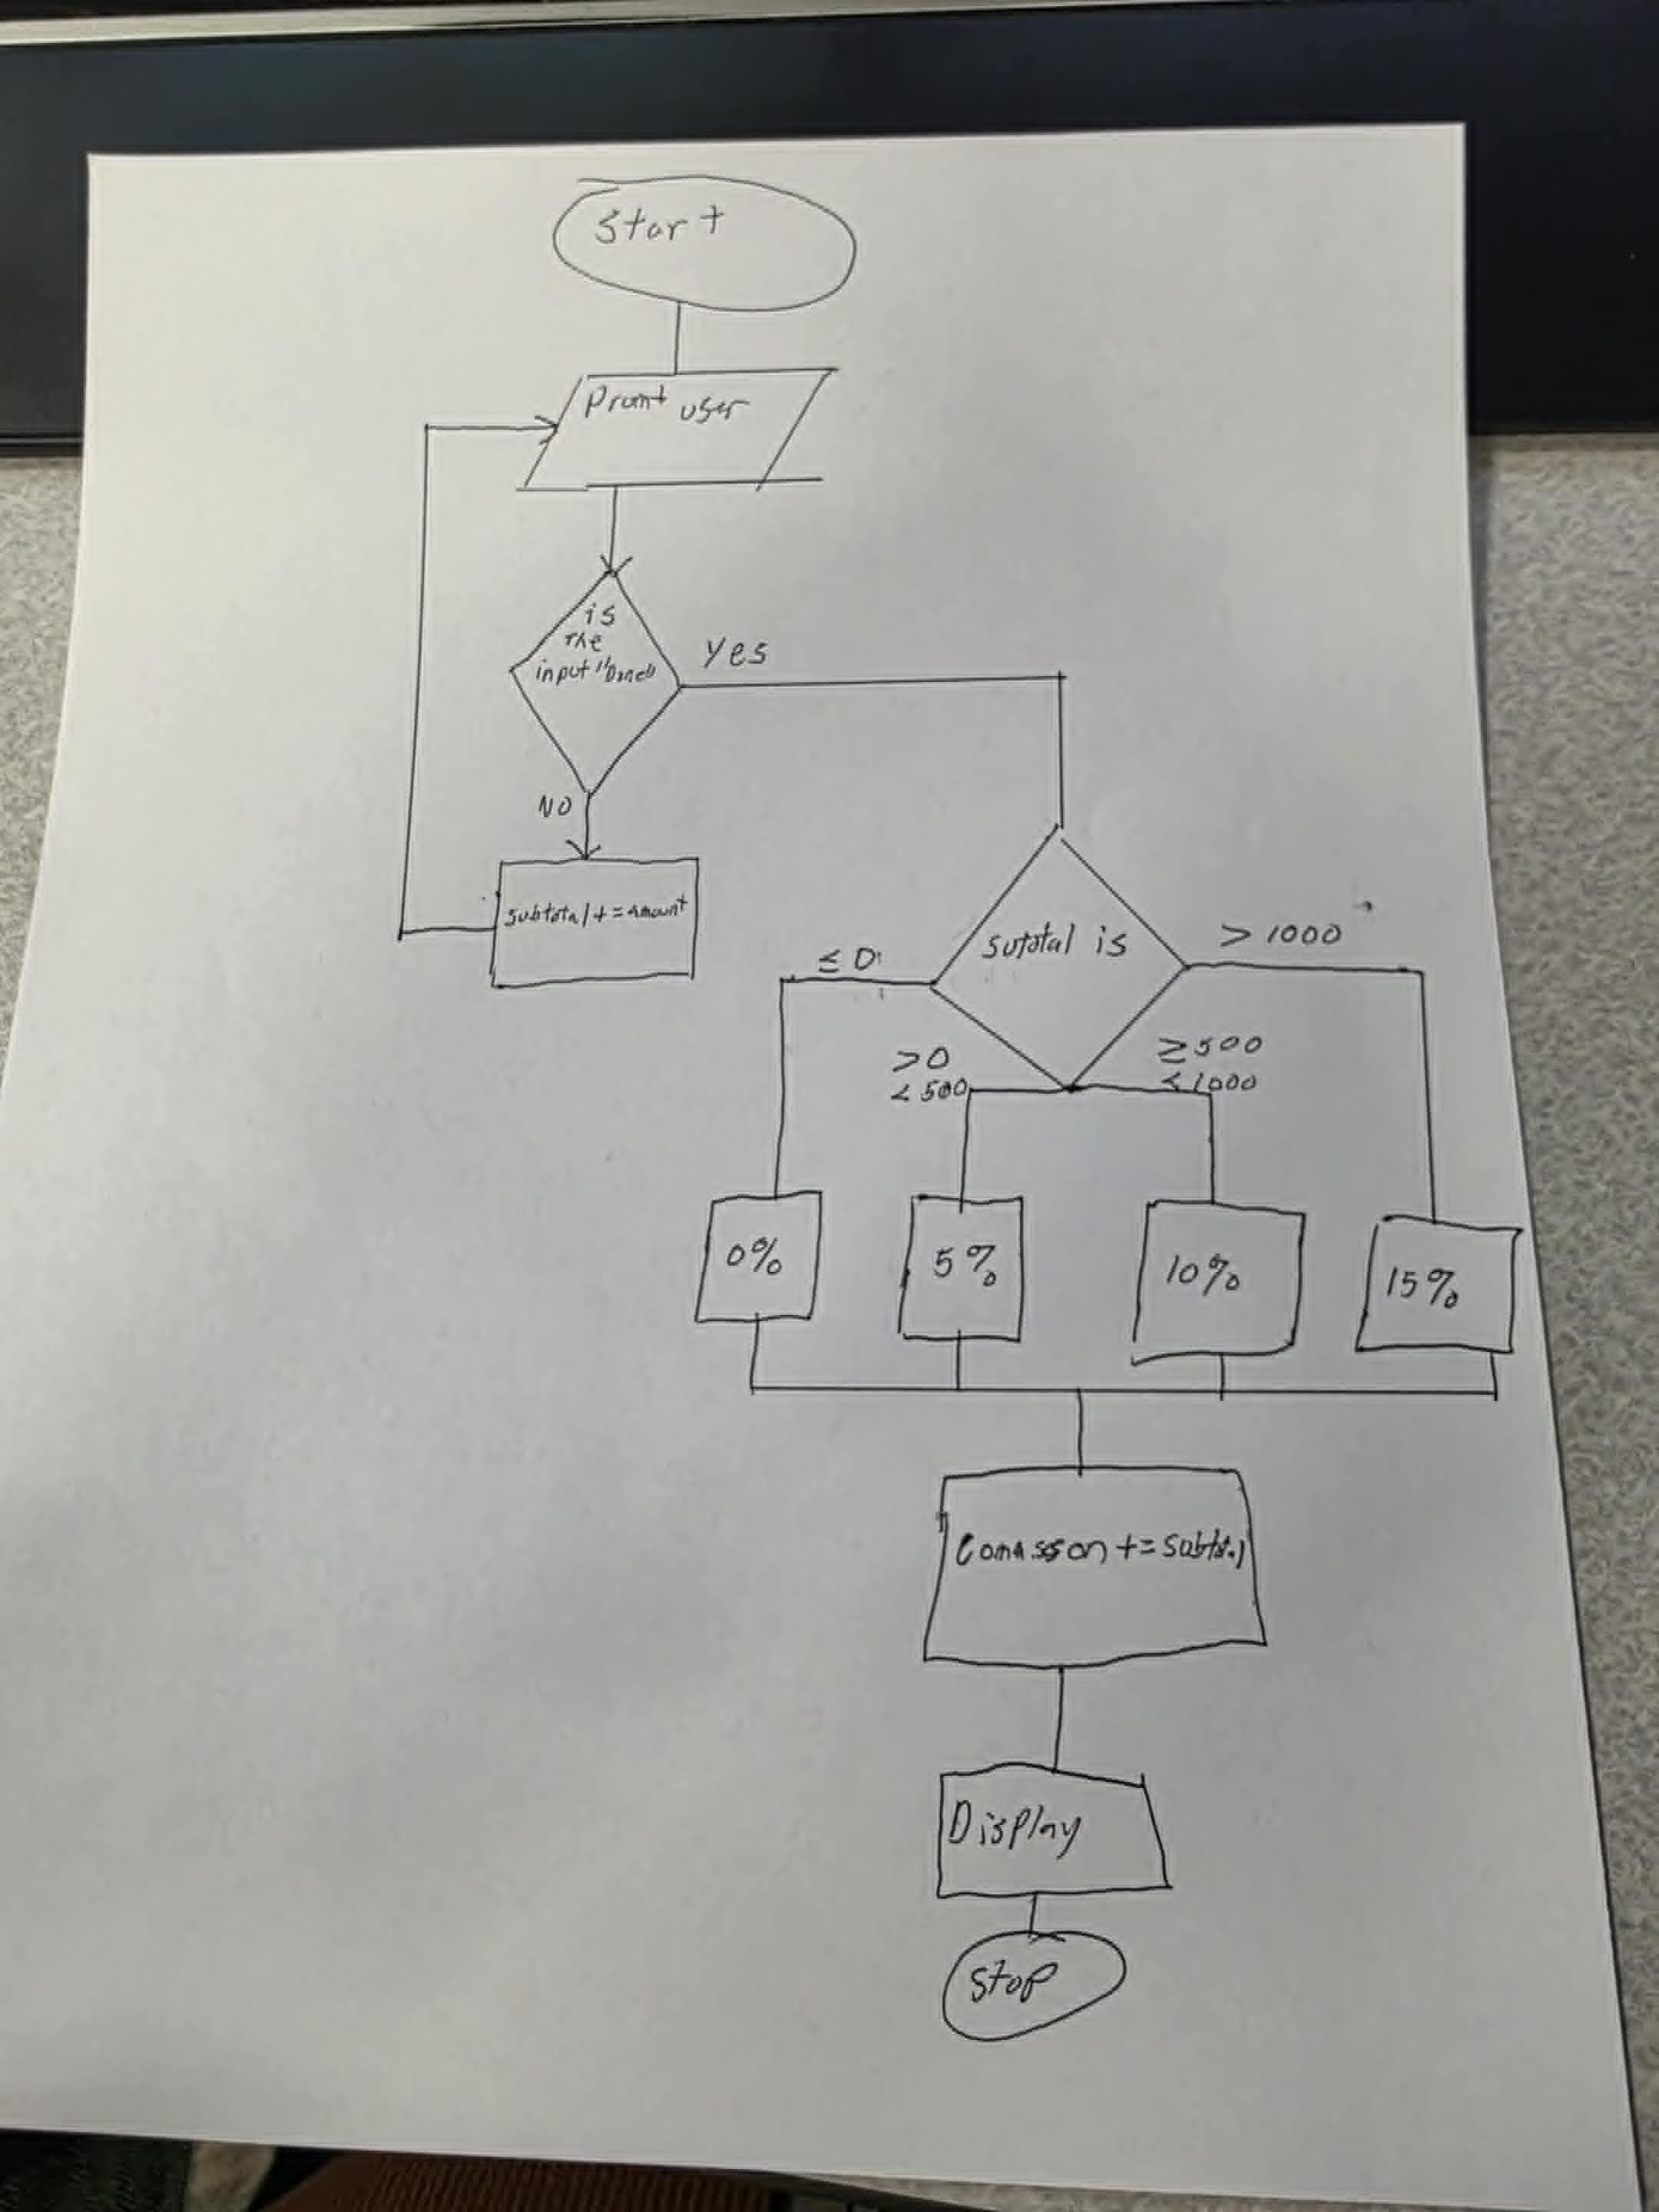 Start
Promt user
is
The
input "Done"
Yes
NO
subtotal += amount
Suttal is
≤ 0
> 1000
>0
< 500
≥ 500
≤ 1000
0%
5%
10%
15%
+= Subtotal
Display
Stop